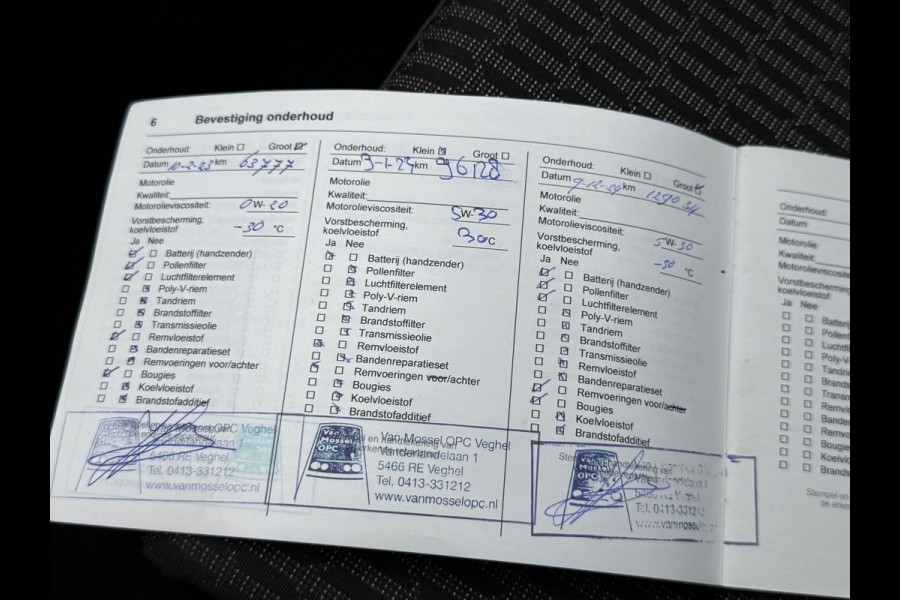 6 Bevestiging onderhoud
Onderhoud: Klein Groot
Datum 10-2-23 km 63777
Motorolie
Kwaliteit:
Motorolieviscositeit: 0W-20
Vorstbescherming,
koelvloeistof -30 °C
Ja Nee
Batterij (handzender)
Pollenfilter
Luchtfilterelement
Poly-V-riem
Tandriem
Brandstoffilter
Transmissieolie
Remvloeistof
Bandenreparatieset
Remvoeringen voor/achter
Bougies
Koelvloeistof
Brandstofadditief
Tel. 0413-331212
www.vanmosselopc.nl
Onderhoud: Klein Groot
Datum 3-1-24 km 96128
Motorolie
Kwaliteit:
Motorolieviscositeit: 5W-30
Vorstbescherming,
koelvloeistof 30 °C
Ja Nee
Batterij (handzender)
Pollenfilter
Luchtfilterelement
Poly-V-riem
Tandriem
Brandstoffilter
Transmissieolie
Remvloeistof
Bandenreparatieset
Remvoeringen voor/achter
Bougies
Koelvloeistof
Brandstofadditief
Van Mossel OPC
Van Mossel OPC Veghel
Vanderlandelaan 1
5466 RE Veghel
Tel. 0413-331212
www.vanmosselopc.nl
Onderhoud: Klein Groot
Datum 9-12-24 km 129034
Motorolie
Kwaliteit:
Motorolieviscositeit: 5W-30
Vorstbescherming,
koelvloeistof -30 °C
Ja Nee
Batterij (handzender)
Pollenfilter
Luchtfilterelement
Poly-V-riem
Tandriem
Brandstoffilter
Transmissieolie
Remvloeistof
Bandenreparatieset
Remvoeringen voor/achter
Bougies
Koelvloeistof
Brandstofadditief
Van Mossel OPC
Tel. 0413-331212
Onderhoud:
Datum
Motorolie
Kwaliteit:
Motorolieviscositeit
Vorstbescherming
koelvloeistof
Ja Nee